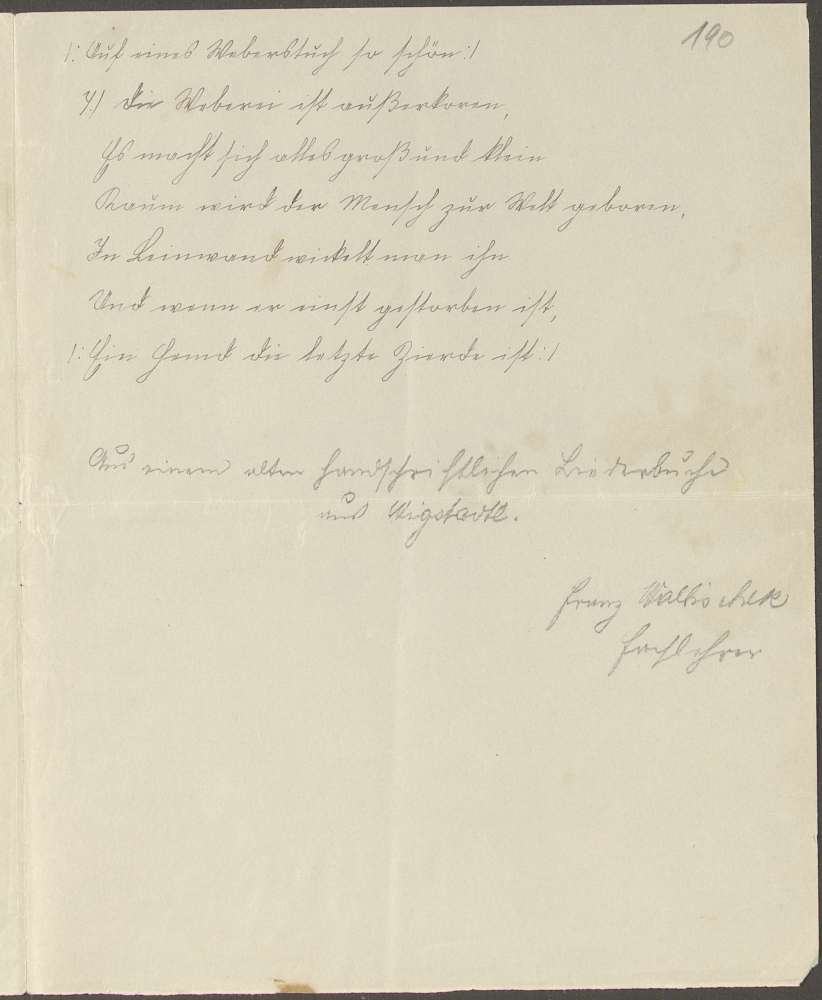 190
/: Auf eines Weberstuch so schön :/
7.) Die Weberei ist außerkoren,
Es macht sich alles groß und klein
Kaum wird der Mensch zur Welt geboren,
In Leinwand wickelt man ihn
Und wenn er einst gestorben ist,
/: Ein Hemd die letzte Zierde ist :/
Aus einem alten handschriftlichen Liederbuche
aus Wigstadtl.
Franz
Fachlehrer